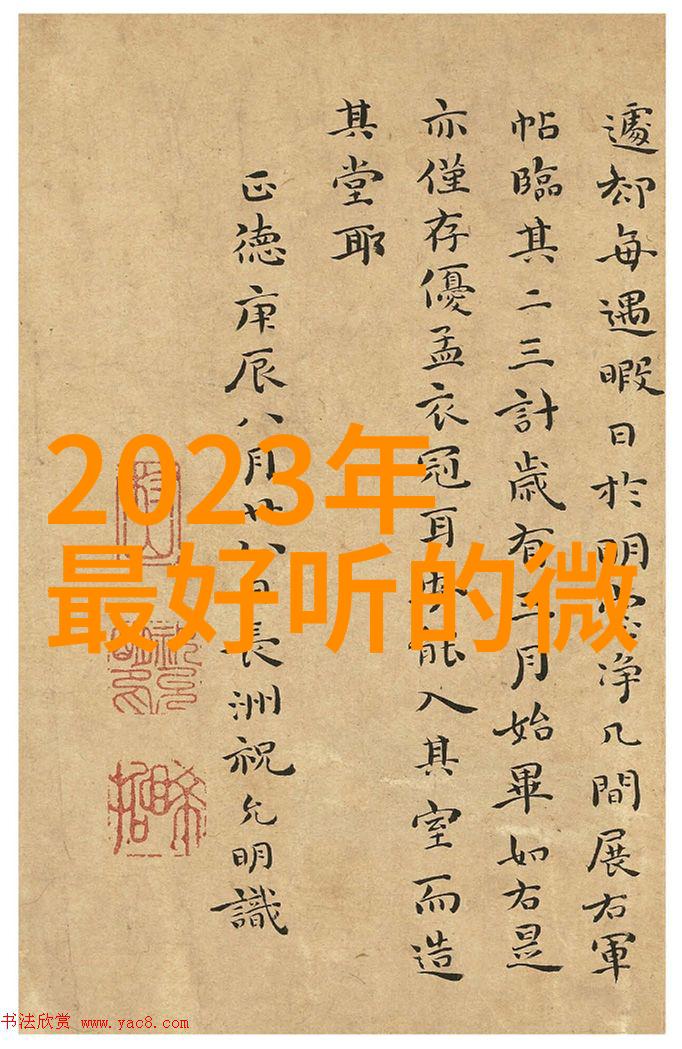 遽却每遇暇日於明净几間展右軍
帖臨其二三計歲有月始畢如右是
亦僅存優孟衣冠耳能入其室而造
其堂耶
正德庚辰八月廿八日長洲祝允明識
2023年
最好听的微
书法欣赏 www.yac8.com